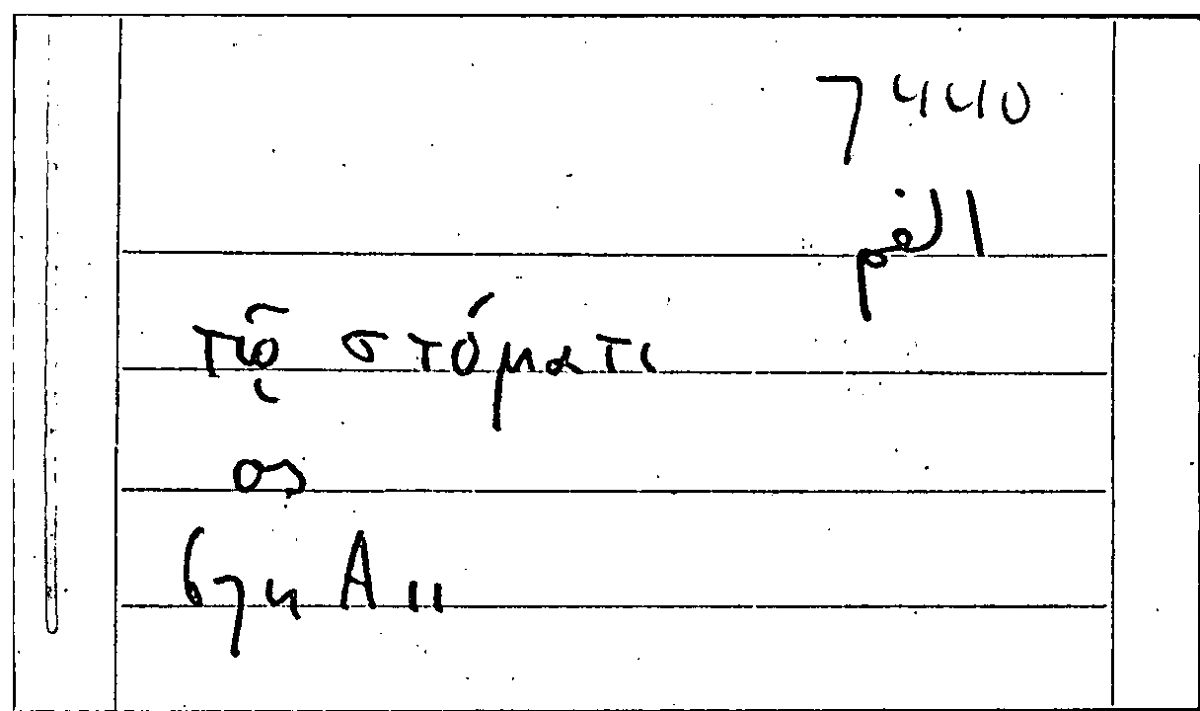 7440
الفم
τῷ στόματι
os
674 A 11